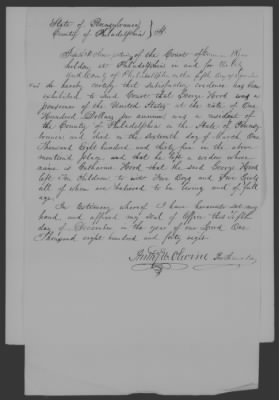 State of Pennsylvania
County of Philadelphia } SS
of the Court of
holden at Philadelphia in and for the City
and County of Philadelphia on the fifth day of
do hereby certify that satisfactory evidence has been
exhibited to said Court that George Hood was a
pensioner of the United States at the rate of One
Hundred Dollars per annum was a resident of
the County of Philadelphia in the State of Pennsyl
vania and died in the day of March One
Thousand Eight hundred and thirty five in the above
mentioned place, and that he left a widow whose
name is Catharine Hood that the said George Hood
left Ten children to wit Five Boys and Five Girls
all of whom are believed to be living and of full
age.
In testimony whereof I have hereunto set my
hand and affixed my seal of Office this fifth
day of December in the year of our Lord One
Thousand eight hundred and forty eight